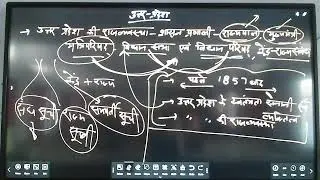 उत्तर-प्रदेश
उत्तर प्रदेश की राजव्यवस्था - शासन प्रणाली - राज्यपाल मुख्यमंत्री
मंत्रिपरिषद विधान सभा एवं विधान परिषद
केंद्र + राज्य
1857 बाद
संघ सूची राज्य सूची समवर्ती सूची
उत्तर प्रदेश के स्वतंत्रता सेनानी
" " की राजव्यवस्था